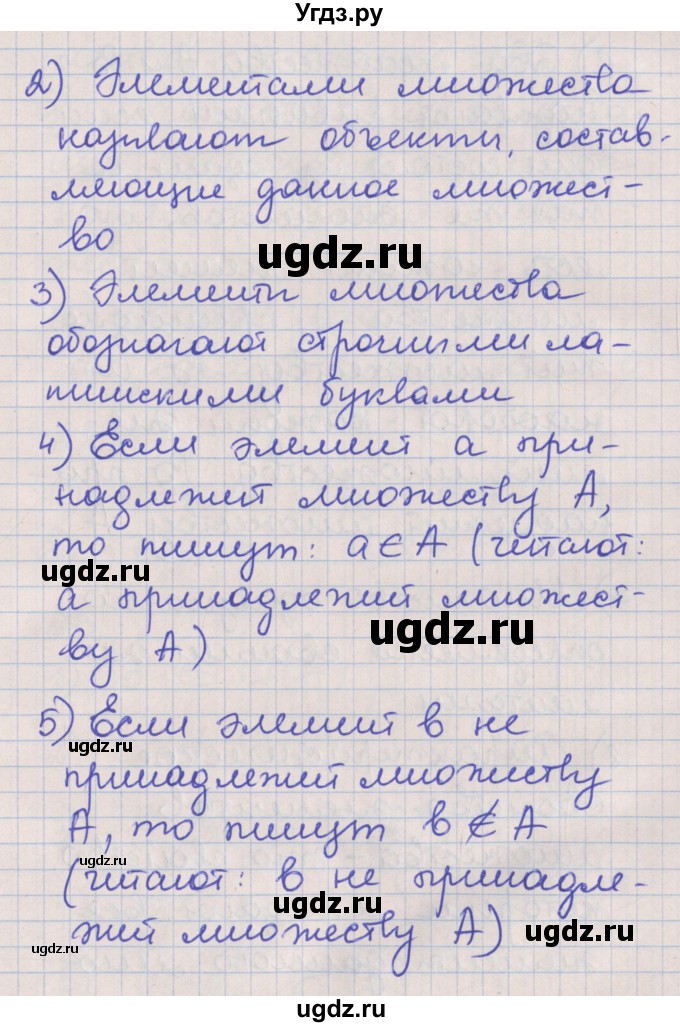 Угдз.ру
2) Элементами множества
называют объекты, состав-
ляющие данное множест-
во
ugdz.ru
3) Элементы множества
обозначают строчными ла-
тинскими буквами
4) Если элемент a при-
надлежит множеству A,
то пишут: a∈A (читают:
ugdz.ru
a принадлежит множест-
ugdz.ru
ву A)
5) Если элемент b не
ugdz.ru
принадлежит множеству
A, то пишут b∉A
ugdz.ru
(читают: b не принадле-
ugdz.ru
жит множеству A)
ugdz.ru
ugdz.ru
ugdz.ru